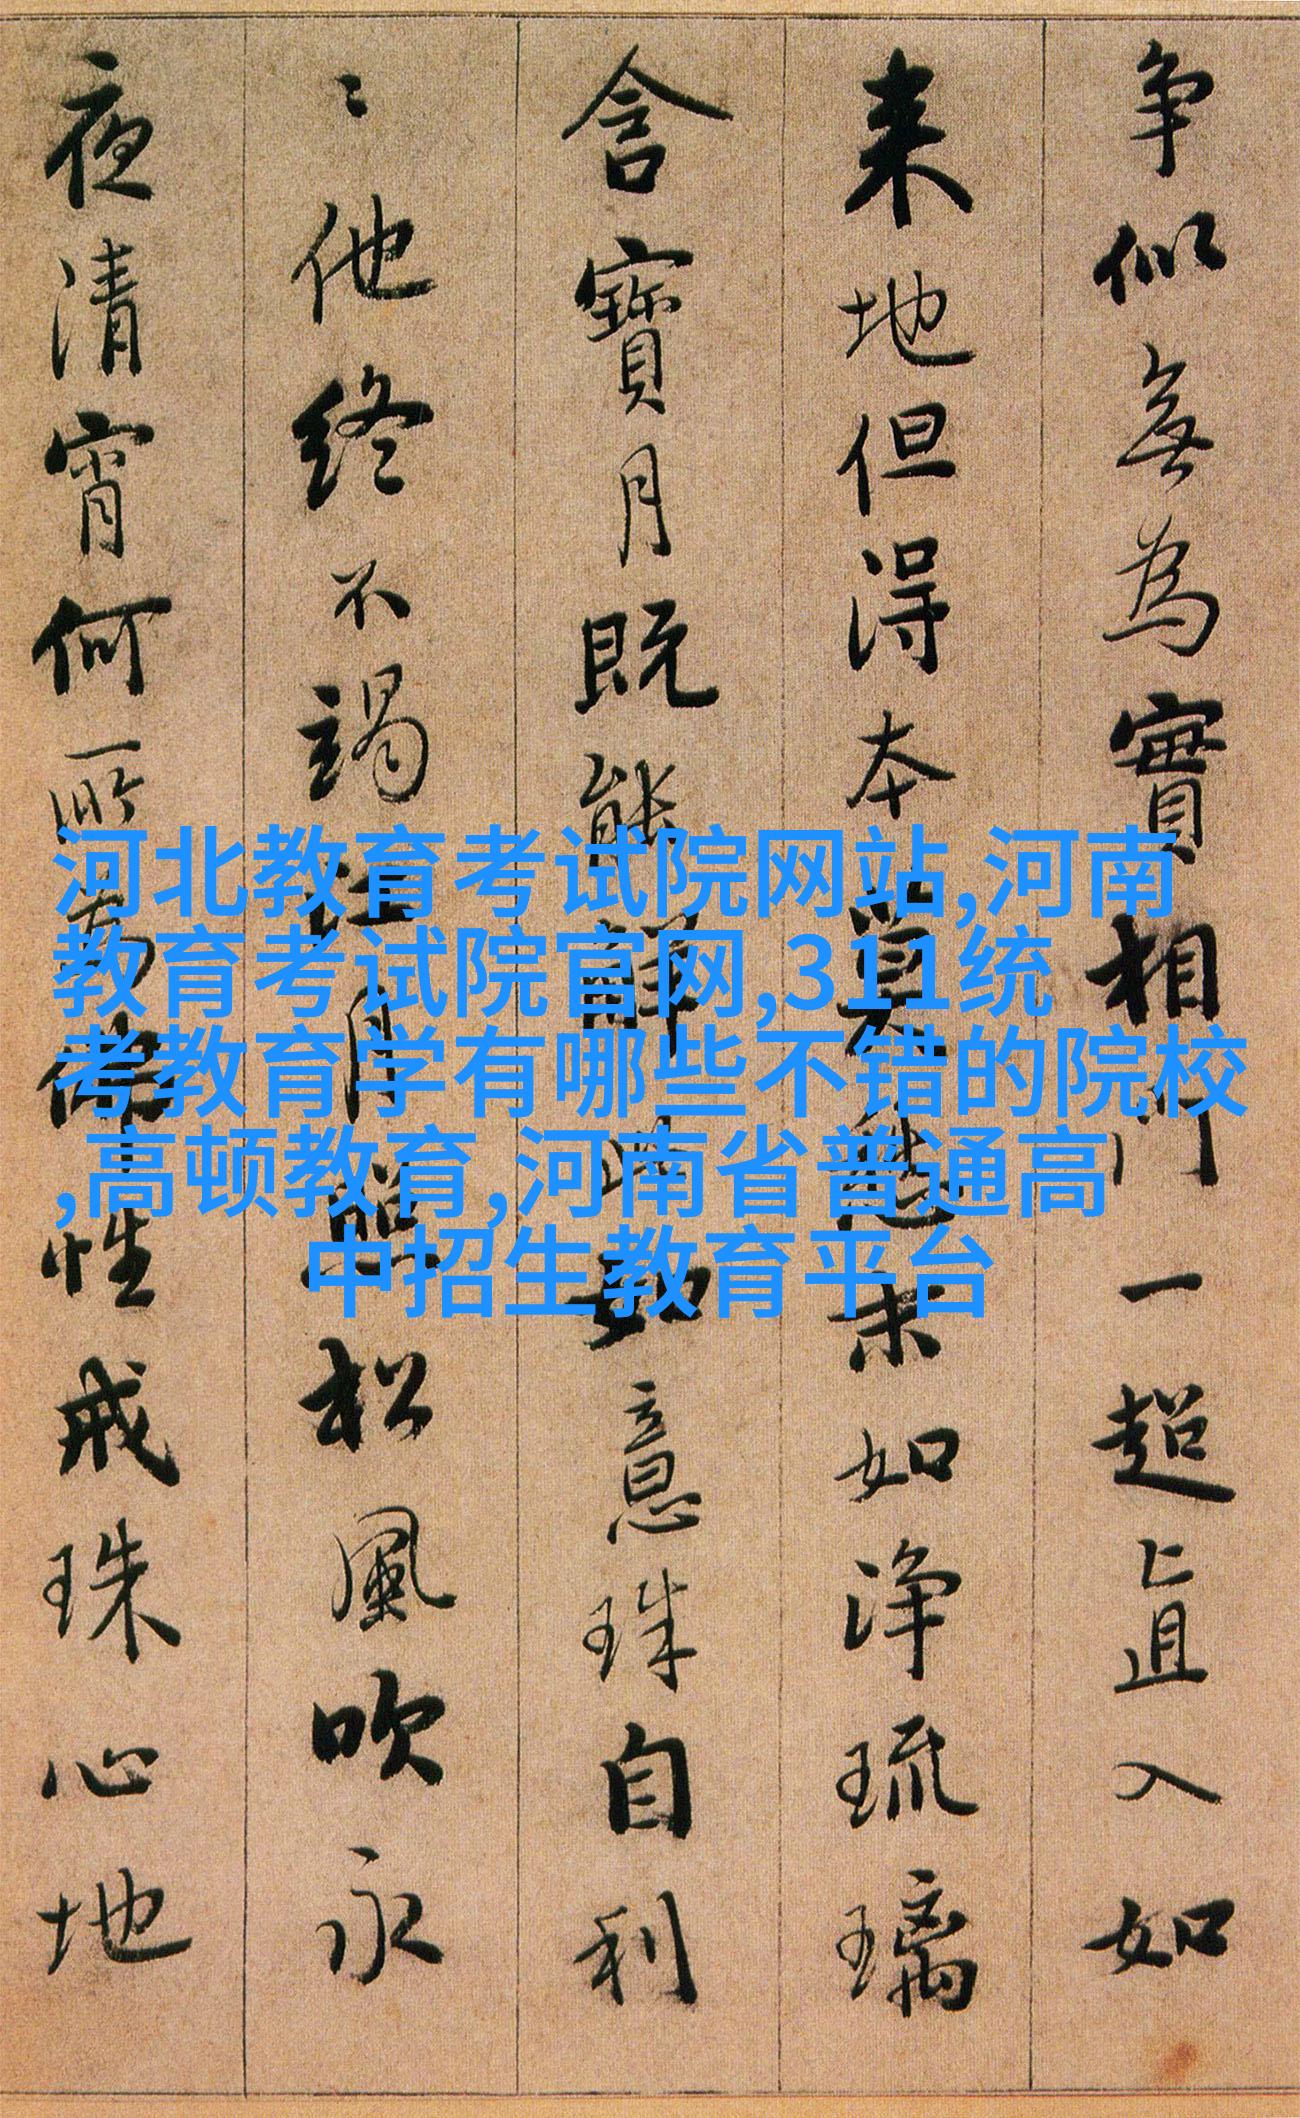 争似無為實相門一超直入如
来地但得本莫愁末如淨琉璃
含寶月既能解此如意珠自利
〻他終不竭江月照松風吹永
夜清宵何所為佛性戒珠心地
河北教育考试院网站,河南
教育考试院官网,311统
考教育学有哪些不错的院校
,高顿教育,河南省普通高
中招生教育平台